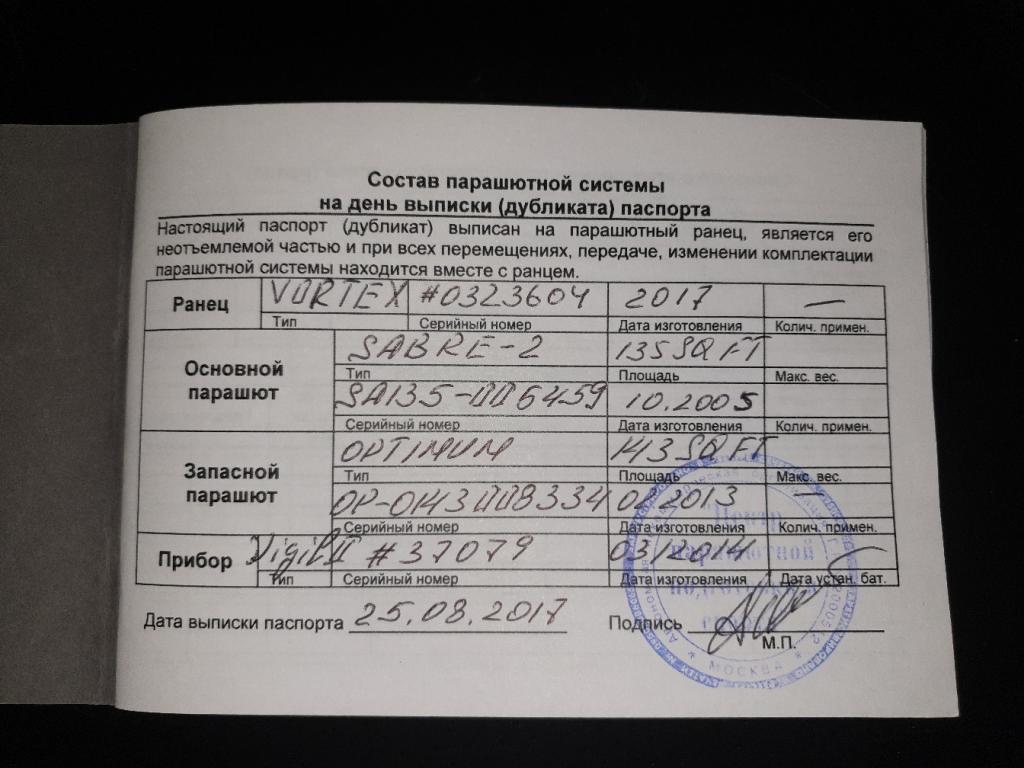 Состав парашютной системы
на день выписки (дубликата) паспорта
Настоящий паспорт (дубликат) выписан на парашютный ранец, является его
неотъемлемой частью и при всех перемещениях, передаче, изменении комплектации
парашютной системы находится вместе с ранцем.
Ранец VORTEX #0323604 2017 —
Тип Серийный номер Дата изготовления Колич. примен.
Основной парашют
SABRE-2 135 SQ FT
Тип Площадь Макс. вес.
SA135-006459 10.2005
Серийный номер Дата изготовления Колич. примен.
Запасной парашют
OPTIMUM 143 SQ FT
Тип Площадь Макс. вес.
OP-0143008334 02.2013 —
Серийный номер Дата изготовления Колич. примен.
Прибор Vigil II #37079 03/2014 —
Тип Серийный номер Дата изготовления Дата устан. бат.
Дата выписки паспорта 25.08.2017 Подпись
М.П.
Центр
парашютной
подготовки
МОСКВА